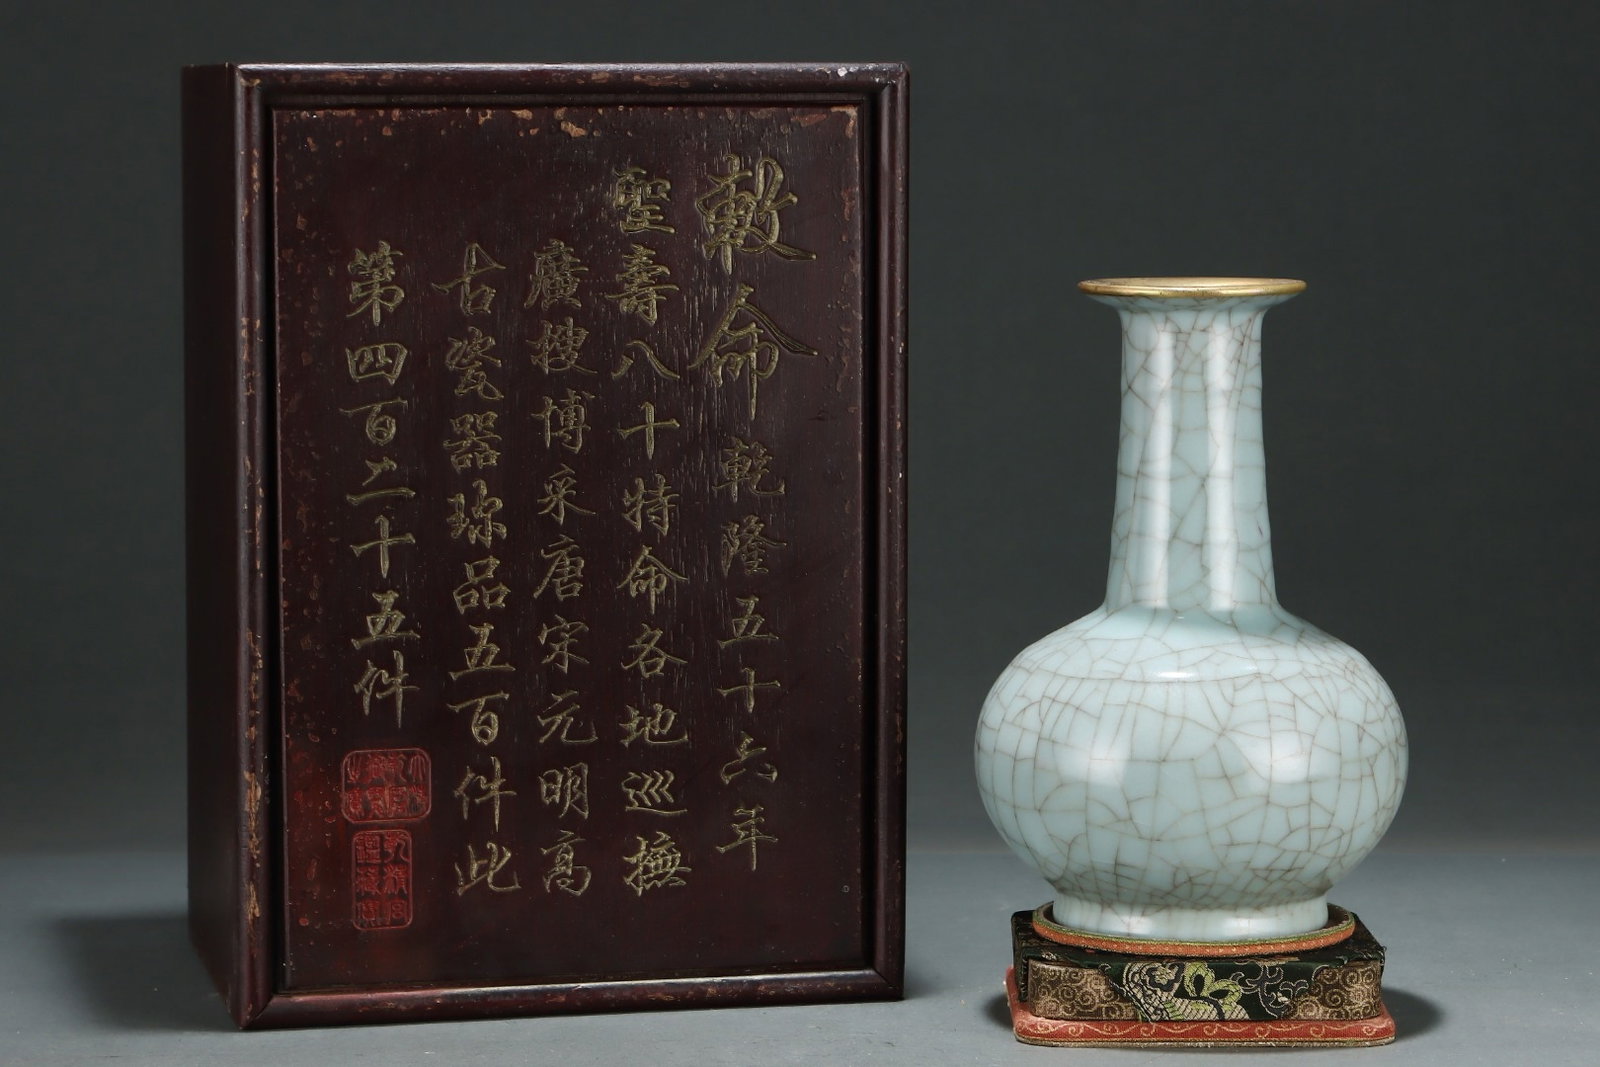 敕命乾隆五十六年
聖壽八十特命各地巡撫
廣搜博采唐宋元明高
古瓷器珎品五百件此
第四百二十五件